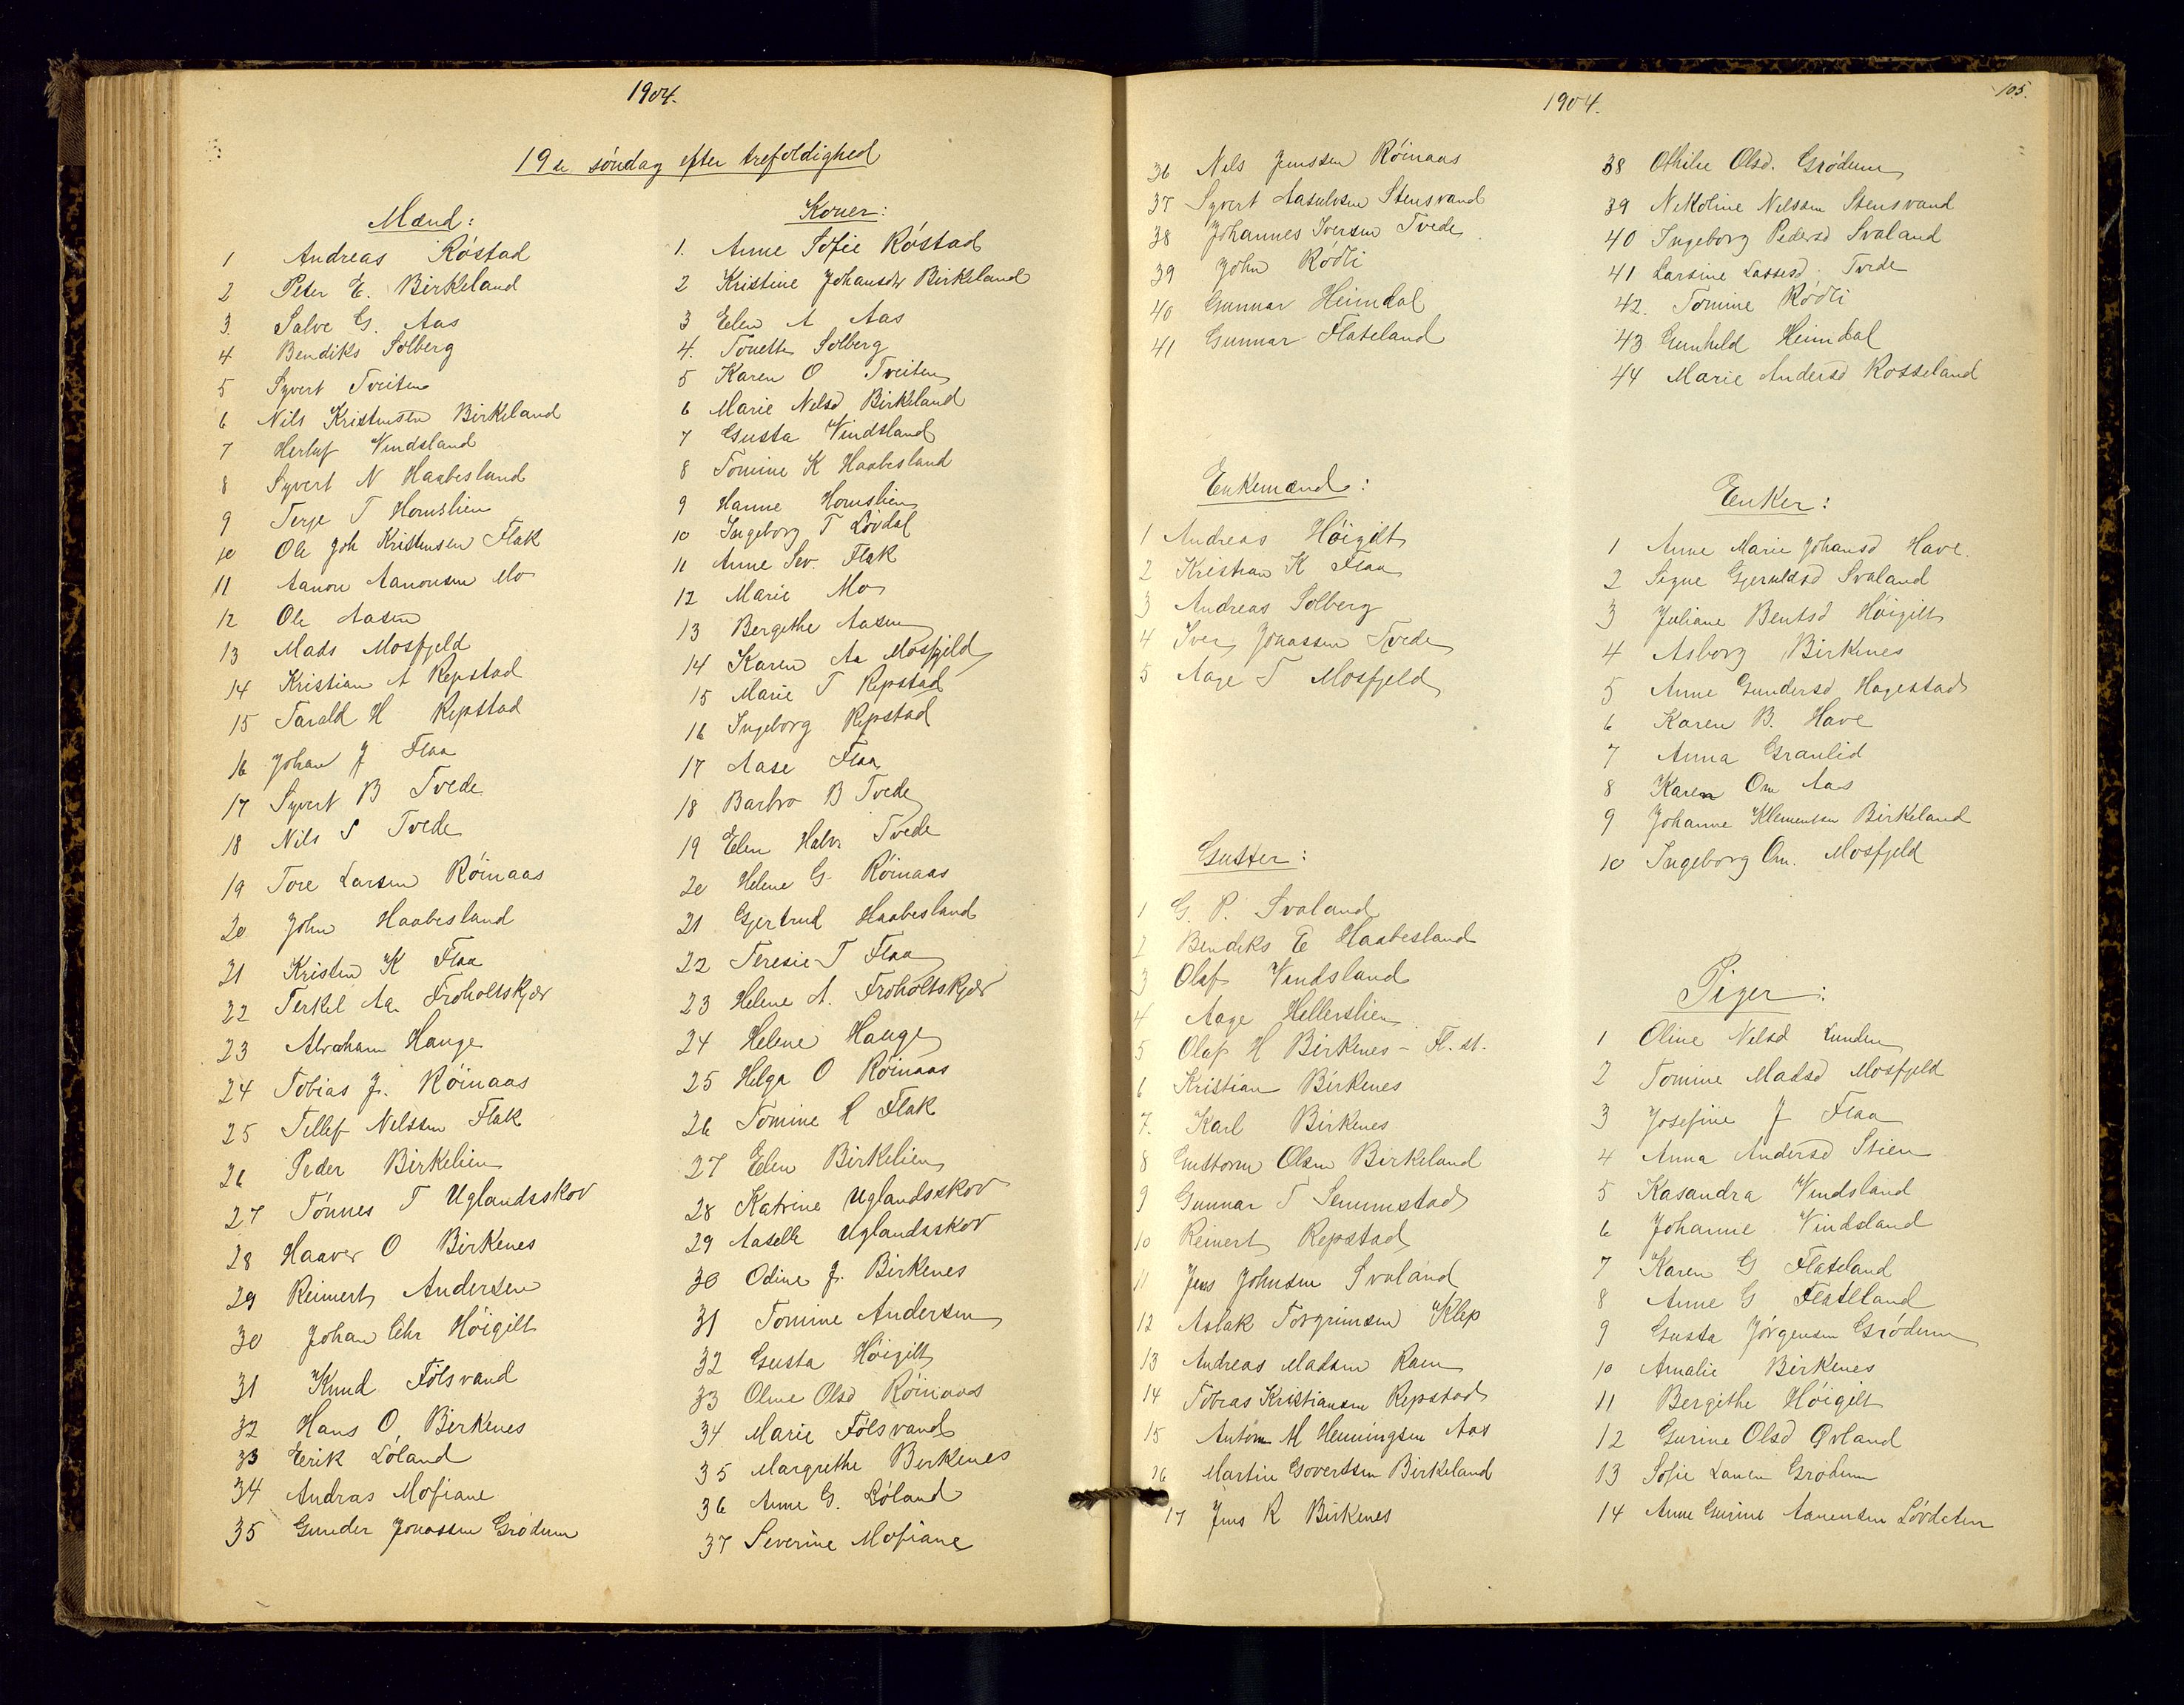 1904.
19de søndag efter trefoldighed
Mænd:
1 Andreas Røstad
2 Peter E. Birkeland
3. Salve G. Aas
4 Bendiks Solberg
5 Syvert Tveiten
6 Nils Kristensen Birkeland
7 Herluf Vindsland
8 Syvert N Haabesland
9 Terje T Hornslien
10 Ole Joh Kristensen Flak
11 Aanon Aanonsen Mo
12 Ole Aasen
13 Mads Mosfjeld
14 Kristian A Repstad
15 Tarald H Repstad
16 Johan J Flaa
17 Syvert B Tvede
18 Nils S Tvede
19 Tore Larsen Røinaas
20 John Haabesland
21 Kristen K Flaa
22 Terkel Aa. Froholtskjær
23 Abraham Hauge
24 Tobias J. Røinaas
25 Tellef Nelssen Flak
26 Peder Birkelien
27 Tønnes T Uglandsskov
28 Haaver O Birkenes
29 Reinert Andersen
30 Johan Chr Høigilt
31 Knud Følsvand
32 Hans O. Birkenes
33 Eerik Løland
34 Andras Mofiane
35 Gunder Jonassen Grødum
Koner:
1. Anne Sofie Røstad
2 Kristine Johansdtr Birkeland
3 Elen A Aas
4. Tonette Solberg
5 Karen O Tveiten
6 Marie Nelsd Birkeland
7 Gusta Vindsland
8 Tomine K Haabesland
9 Hanne Hornslien
10 Ingeborg T Løvdal
11 Anne Sev. Flak
12 Marie Mo
13 Bergethe Aasen
14 Karen Aa Mosfjeld
15 Marie T Repstad
16 Ingeborg Repstad
17 Aase Flaa
18 Barbro B Tvede
19 Elen Halv. Tvede
20 Helene G. Røinaas
21 Gjertrud Haabesland
22 Teresie T Flaa
23 Helene A. Froholtskjær
24 Helene Hauge
25 Helga O Røinaas
26 Tomine L Flak
27 Elen Birkelien
28 Katrine Uglandsskov
29 Aaselle Uglandsskov
30 Odine J. Birkenes
31 Tomine Andersen
32 Gusta Høigilt
33 Oline Olsd Røinaas
34 Marie Følsvand
35 Margrethe Birkenes
36 Anne G. Løland
37 Severine Mofiane
1904.
105.
36 Nils Jenssen Røinaas
37 Syvert Aasulvsen Stensvand
38 Johannes Iversen Tvede
39 John Rødli
40 Gunnar Heimdal
41 Gunnar Flateland
38 Othilie Olsd. Grødum
39 Nekoline Nelssen Stensvand
40 Ingeborg Pedersd Svaland
41 Larsine Lassesd. Tvede
42. Tomine Rødli
43 Gunhild Heimdal
44 Marie Andersd Rosseland
Enkemænd:
1 Andreas Høigilt
2 Kristian K Flaa
3 Andreas Solberg
4 Iver Jonassen Tvede
5 Aage T Mosfjeld
Enker:
1 Anne Marie Johansd Have.
2 Signe Gjeruldsd Svaland
3 Juliane Bentsd Høigilt
4 Asborg Birkenes
5 Anne Gundersd Hagestad
6 Karen B. Have
7 Anna Granlid
8 Karen Om Aas
9 Johanne Klementsen Birkeland
10 Ingeborg Om. Mosfjeld
Gutter:
1 G. P. Svaland
2 Bendiks E Haabesland
3 Olaf Vindsland
4 Aage Hellerslien
5 Olaf H Birkenes - Fl. st.
6 Kristian Birkenes
7. Karl Birkenes
8 Guttorm Olsen Birkeland
9 Gunnar T Senumstad
10 Reinert Repstad
11 Jens Johnsen Svaland
12 Aslak Torgrimsen Klep
13 Andreas Madsen Raen
14 Tobias Kristiansen Repstad
15 Anton M Henningsen Aas
16 Martin Govertsen Birkeland
17 Jens R Birkenes
Piger:
1 Oline Nelsd Lunden
2 Tomine Madsd Mosfjeld
3 Josefine J Flaa
4 Anna Andersd Stien
5 Kasandra Vindsland
6 Johanne Vindsland
7 Karen G Flateland
8 Anne G Flateland
9 Gusta Jørgensen Grødum
10 Amalie Birkenes
11 Bergithe Høigilt
12 Gurine Olsd Øvland
13 Sofie Grødum
14 Anne Gurine Aanensen